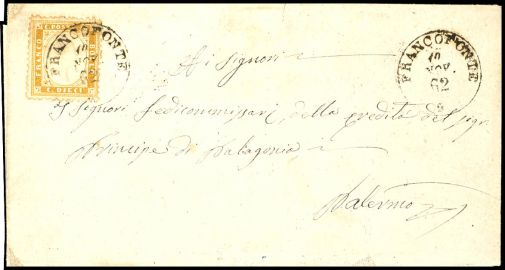 FRANCO C. POSTE BOLLO
C. DIECI
FRANCOFONTE
10
NOV.
62
FRANCOFONTE
10
NOV.
62
Ai Signori
I Signori Fedecommissari della eredità del Sigr
Principe di Palagonia
Palermo